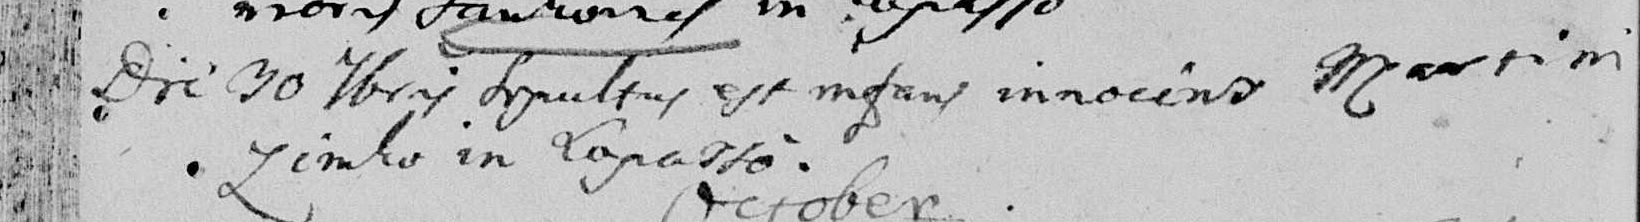 in
Die 30 7bris Sepultus est infans innocens Martini
Zimko in Lopasso.
October